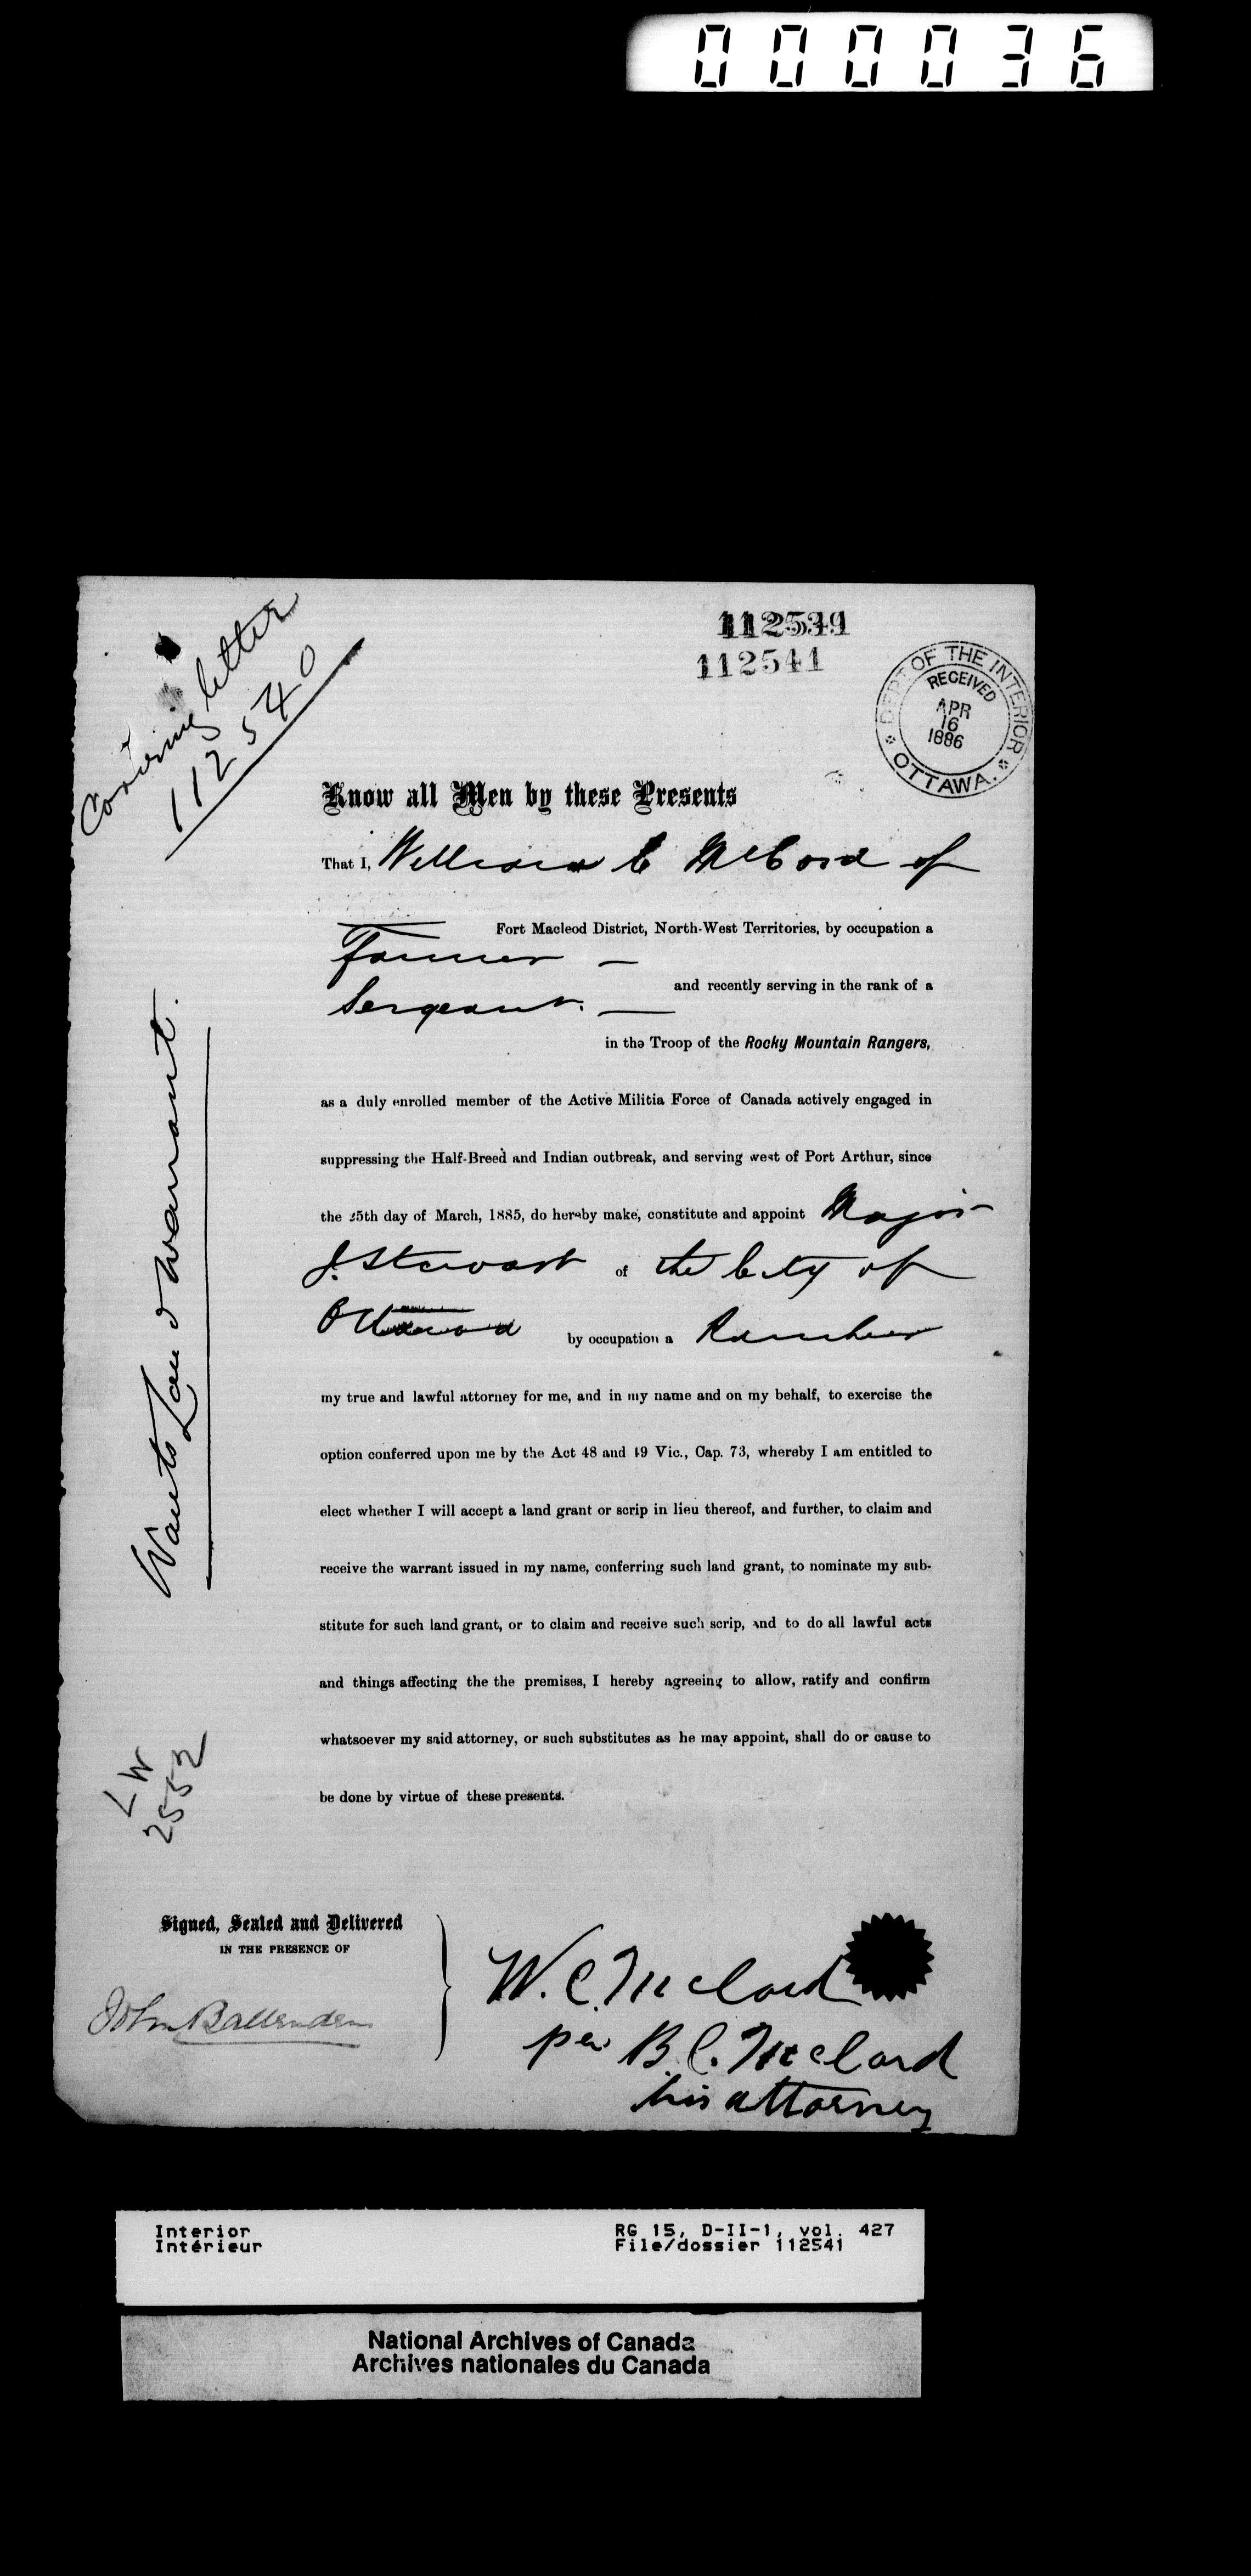 000036
112539
112541
DEPT OF THE INTERIOR
RECEIVED
APR
16
1886
OTTAWA.
Covering letter
112540
Know all Men by these Presents
That I, William C McCord of
Fort Macleod District, North-West Territories, by occupation a
Farmer —
and recently serving in the rank of a
Sergeant. —
in the Troop of the Rocky Mountain Rangers,
as a duly enrolled member of the Active Militia Force of Canada actively engaged in
suppressing the Half-Breed and Indian outbreak, and serving west of Port Arthur, since
the 25th day of March, 1885, do hereby make, constitute and appoint Major
J. Stewart of the City of
Ottawa by occupation a Rancher
my true and lawful attorney for me, and in my name and on my behalf, to exercise the
option conferred upon me by the Act 48 and 49 Vic., Cap. 73, whereby I am entitled to
elect whether I will accept a land grant or scrip in lieu thereof, and further, to claim and
receive the warrant issued in my name, conferring such land grant, to nominate my sub-
stitute for such land grant, or to claim and receive such scrip, and to do all lawful acts
and things affecting the the premises, I hereby agreeing to allow, ratify and confirm
whatsoever my said attorney, or such substitutes as he may appoint, shall do or cause to
be done by virtue of these presents.
Wants Land warrant.
L W
2552
Signed, Sealed and Delivered
IN THE PRESENCE OF
John Ballenden
W. C. McCord
per B. C. McCord
his attorney
Interior
Intérieur
RG 15, D-II-1, vol. 427
File/dossier 112541
National Archives of Canada
Archives nationales du Canada